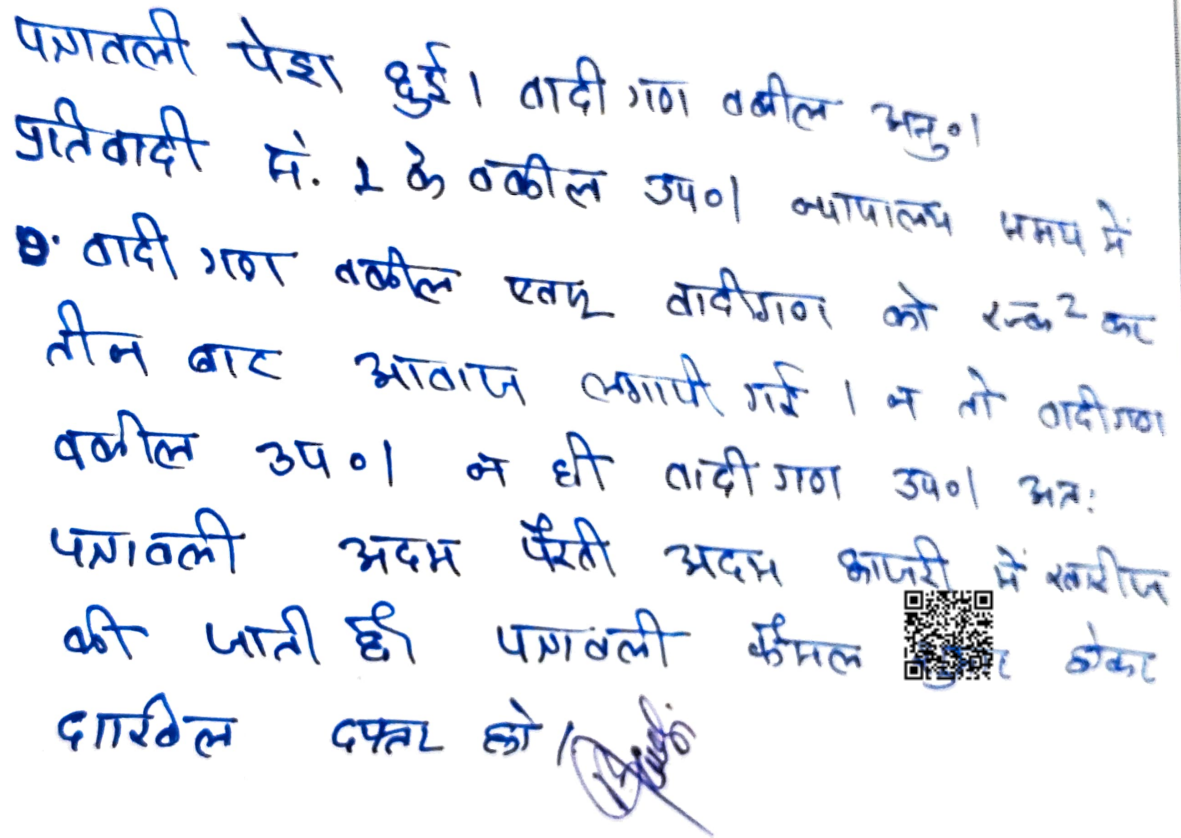 पत्रावली पेश हुई। वादी गण वकील अनु०।
प्रतिवादी सं. 1 के वकील उप०। न्यायालय समय में
वादी गण वकील एवम् वादीगण को रूक 2 कर
तीन बार आवाज लगायी गई । न तो वादीगण
वकील उप०। न ही वादी गण उप०। अतः
पत्रावली अदम पैरवी अदम हाजरी में खारीज
की जाती है। पत्रावली फैसल होकर
दाखिल दफ्तर हो।